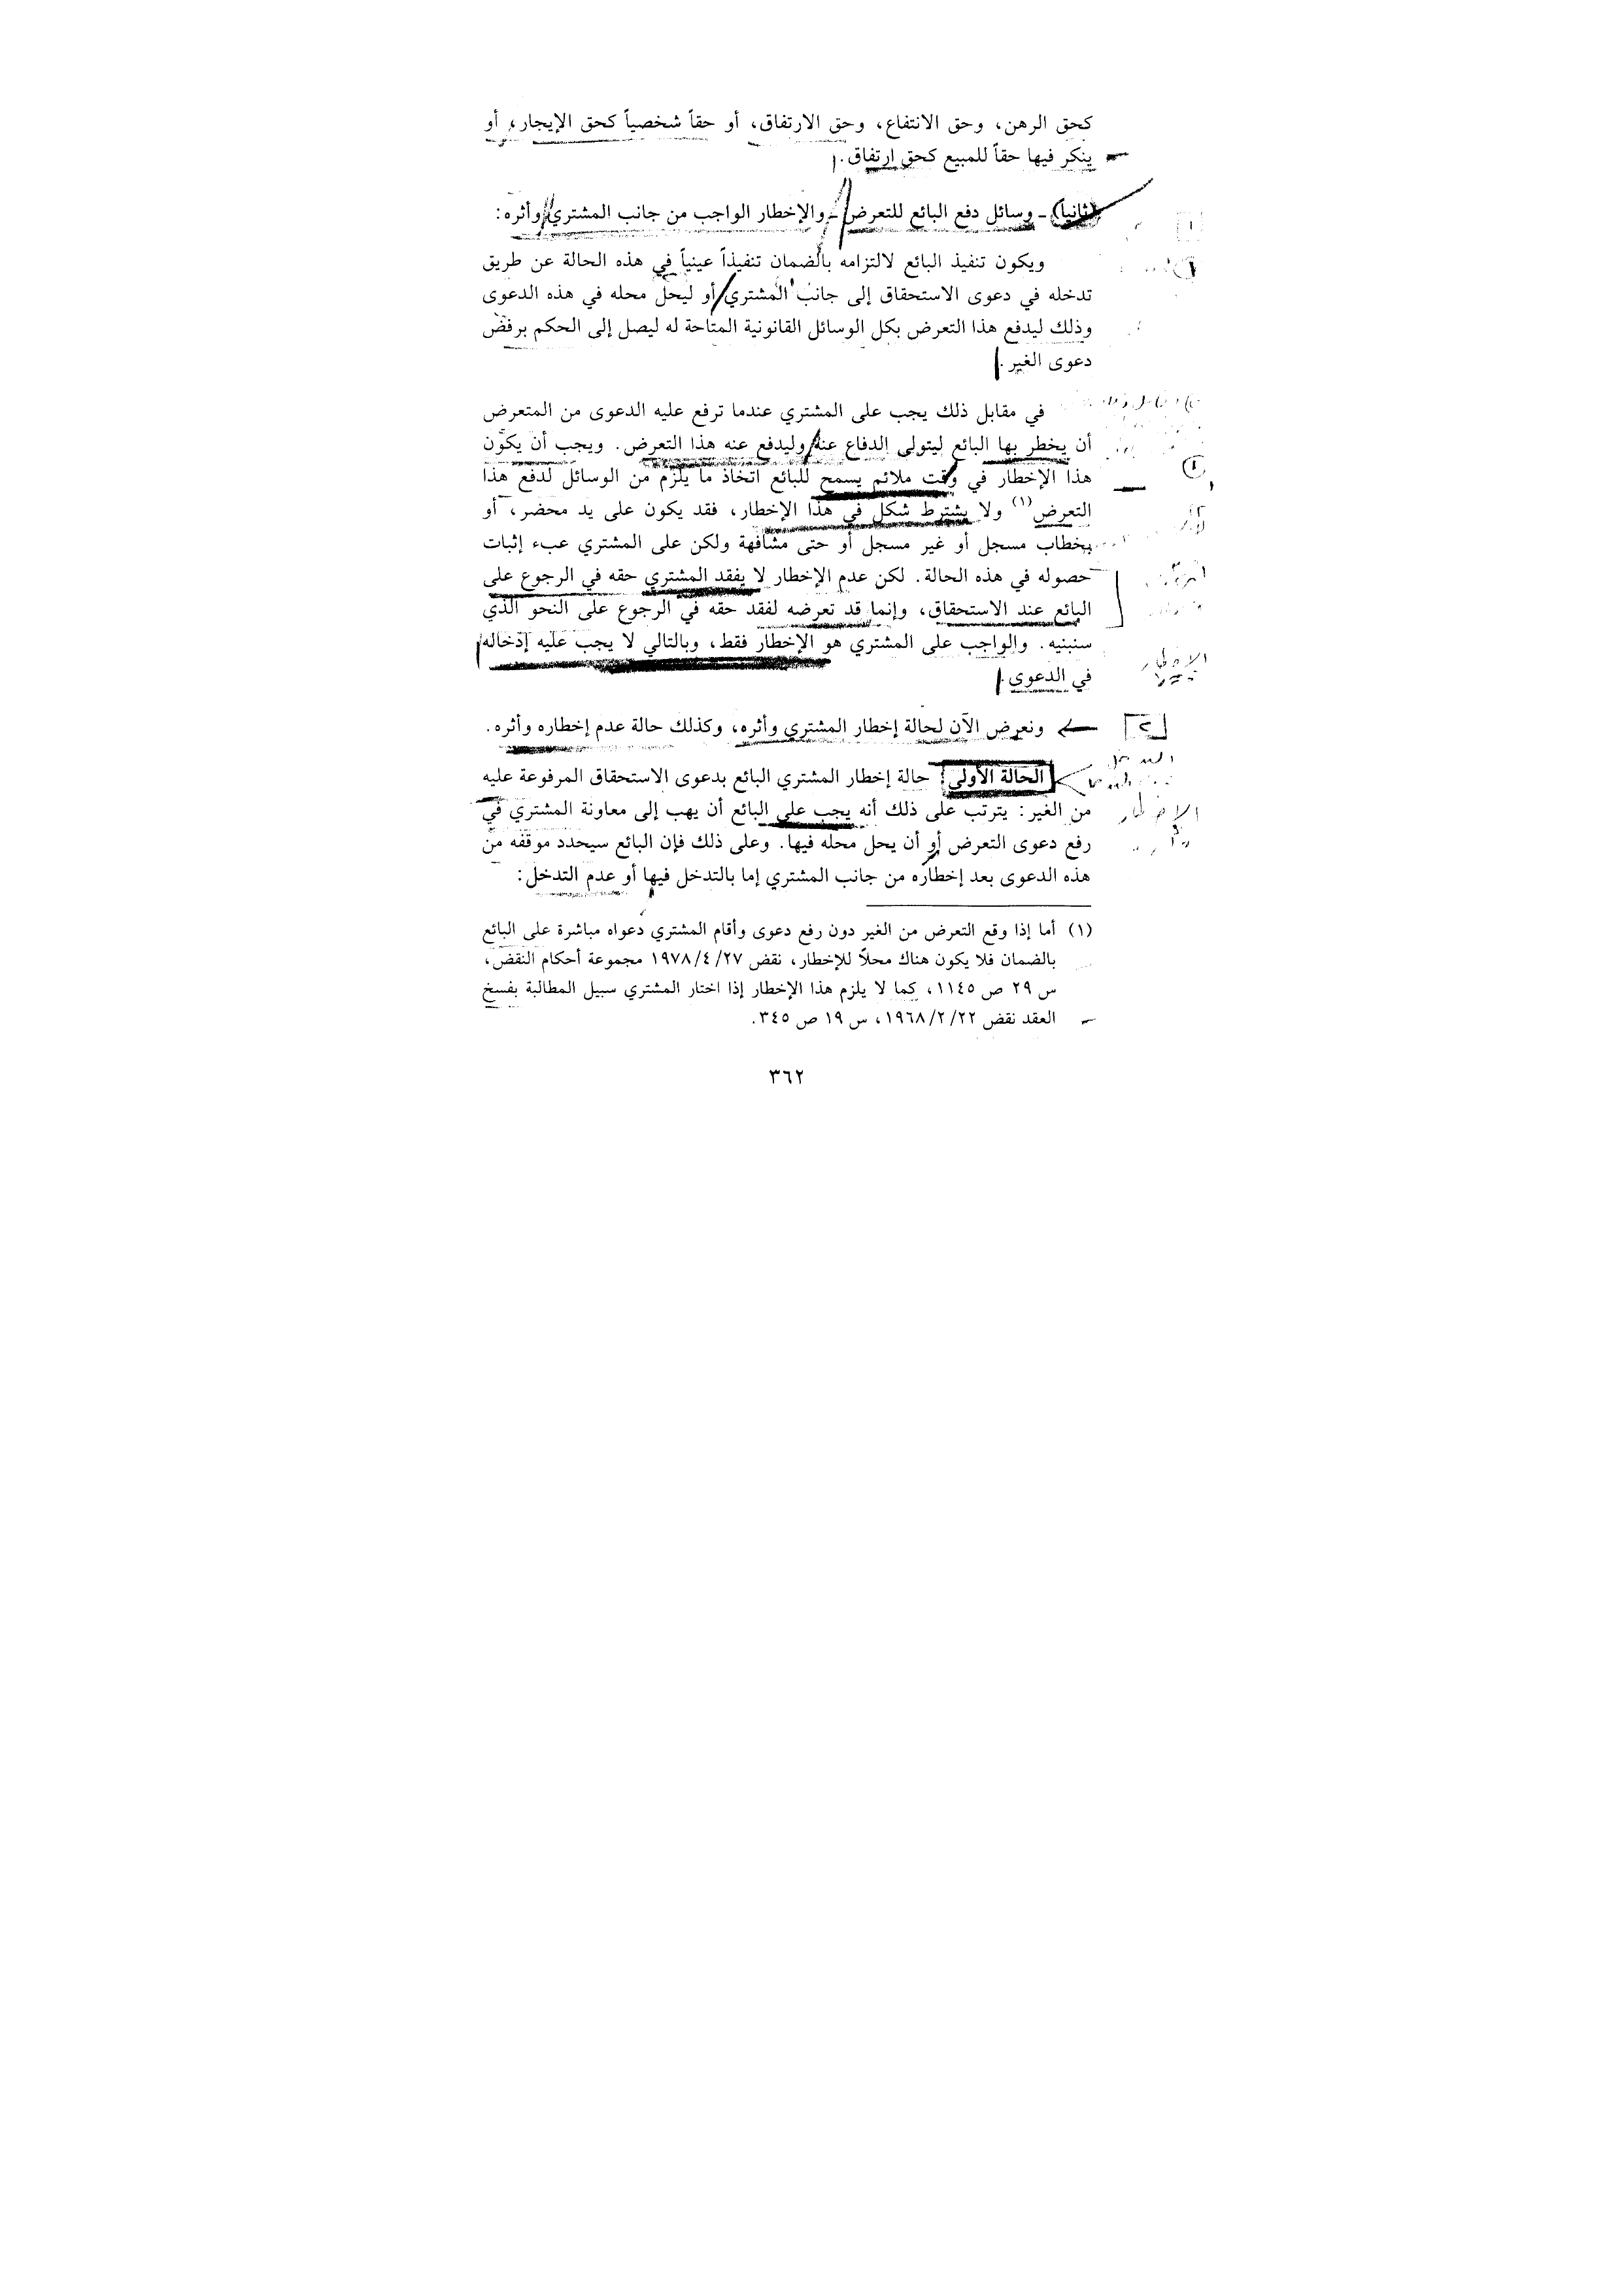 كحق الرهن، وحق الانتفاع، وحق الارتفاق، أو حقاً شخصياً كحق الإيجار، أو
ينكر فيها حقاً للمبيع كحق ارتفاق.
(ثانياً) - وسائل دفع البائع للتعرض - والإخطار الواجب من جانب المشتري وأثره:
ويكون تنفيذ البائع لالتزامه بالضمان تنفيذاً عينياً في هذه الحالة عن طريق
تدخله في دعوى الاستحقاق إلى جانب المشتري أو ليحل محله في هذه الدعوى
وذلك ليدفع هذا التعرض بكل الوسائل القانونية المتاحة له ليصل إلى الحكم برفض
دعوى الغير.
في مقابل ذلك يجب على المشتري عندما ترفع عليه الدعوى من المتعرض
أن يخطر بها البائع ليتولى الدفاع عنه وليدفع عنه هذا التعرض. ويجب أن يكون
هذا الإخطار في وقت ملائم يسمح للبائع اتخاذ ما يلزم من الوسائل لدفع هذا
التعرض(١) ولا يشترط شكل في هذا الإخطار، فقد يكون على يد محضر، أو
بخطاب مسجل أو غير مسجل أو حتى مشافهة ولكن على المشتري عبء إثبات
حصوله في هذه الحالة. لكن عدم الإخطار لا يفقد المشتري حقه في الرجوع على
البائع عند الاستحقاق، وإنما قد تعرضه لفقد حقه في الرجوع على النحو الذي
سنبنيه. والواجب على المشتري هو الإخطار فقط، وبالتالي لا يجب عليه إدخاله
في الدعوى.
٢ ونعرض الآن لحالة إخطار المشتري وأثره، وكذلك حالة عدم إخطاره وأثره.
الحالة الأولى: حالة إخطار المشتري البائع بدعوى الاستحقاق المرفوعة عليه
من الغير: يترتب على ذلك أنه يجب على البائع أن يهب إلى معاونة المشتري في
رفع دعوى التعرض أو أن يحل محله فيها. وعلى ذلك فإن البائع سيحدد موقفه من
هذه الدعوى بعد إخطاره من جانب المشتري إما بالتدخل فيها أو عدم التدخل:
(١) أما إذا وقع التعرض من الغير دون رفع دعوى وأقام المشتري دعواه مباشرة على البائع
بالضمان فلا يكون هناك محلاً للإخطار، نقض ١٩٧٨/٤/٢٧ مجموعة أحكام النقض،
س ٢٩ ص ١١٤٥، كما لا يلزم هذا الإخطار إذا اختار المشتري سبيل المطالبة بفسخ
العقد نقض ١٩٦٨/٢/٢٢، س ١٩ ص ٣٤٥.
٣٦٢